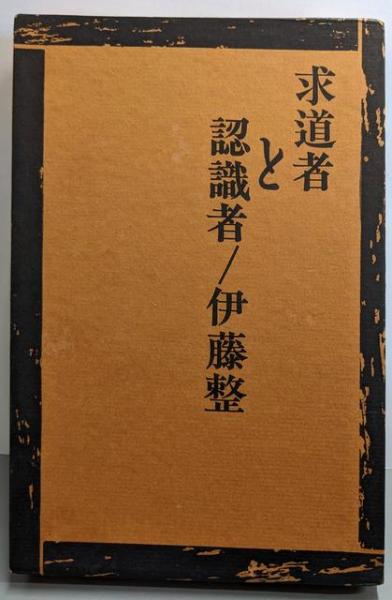 求道者
と
認識者/伊藤整